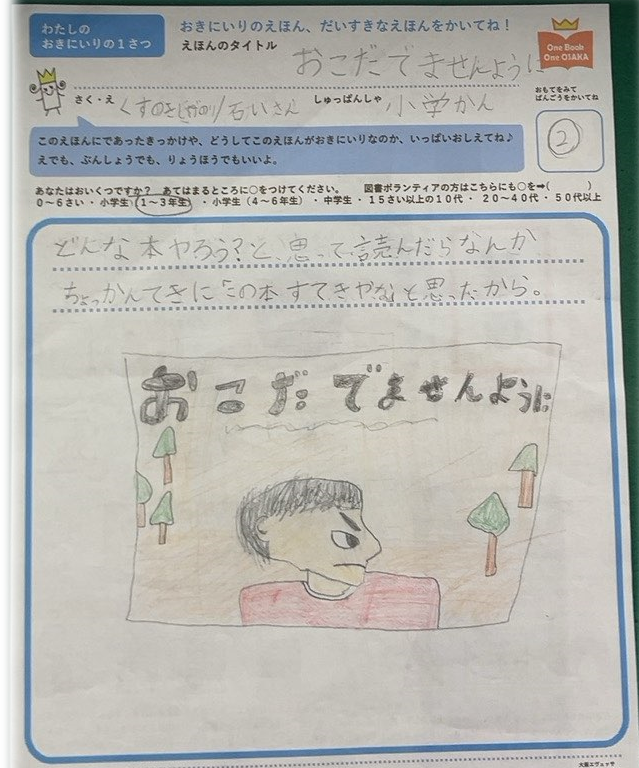 わたしの
おきにいりの1さつ
おきにいりのえほん、だいすきなえほんをかいてね！
えほんのタイトル おこだでませんように
One Book
One OSAKA
さく・え くすのきしげのり/石いさん しゅっぱんしゃ 小学かん
おもてをみて
ばんごうをかいてね
②
このえほんにであったきっかけや、どうしてこのえほんがおきにいりなのか、いっぱいおしえてね♪
えでも、ぶんしょうでも、りょうほうでもいいよ。
あなたはおいくつですか？ あてはまるところに○をつけてください。 図書ボランティアの方はこちらにも○を⇒( )
0～6さい ・ 小学生（1～3年生） ・ 小学生（4～6年生） ・ 中学生 ・ 15さい以上の10代 ・ 20～40代 ・ 50代以上
どんな本やろう？と、思って読んだらなんか
ちょっかんてきに「この本すてきやな」と思ったから。
おこだでませんように